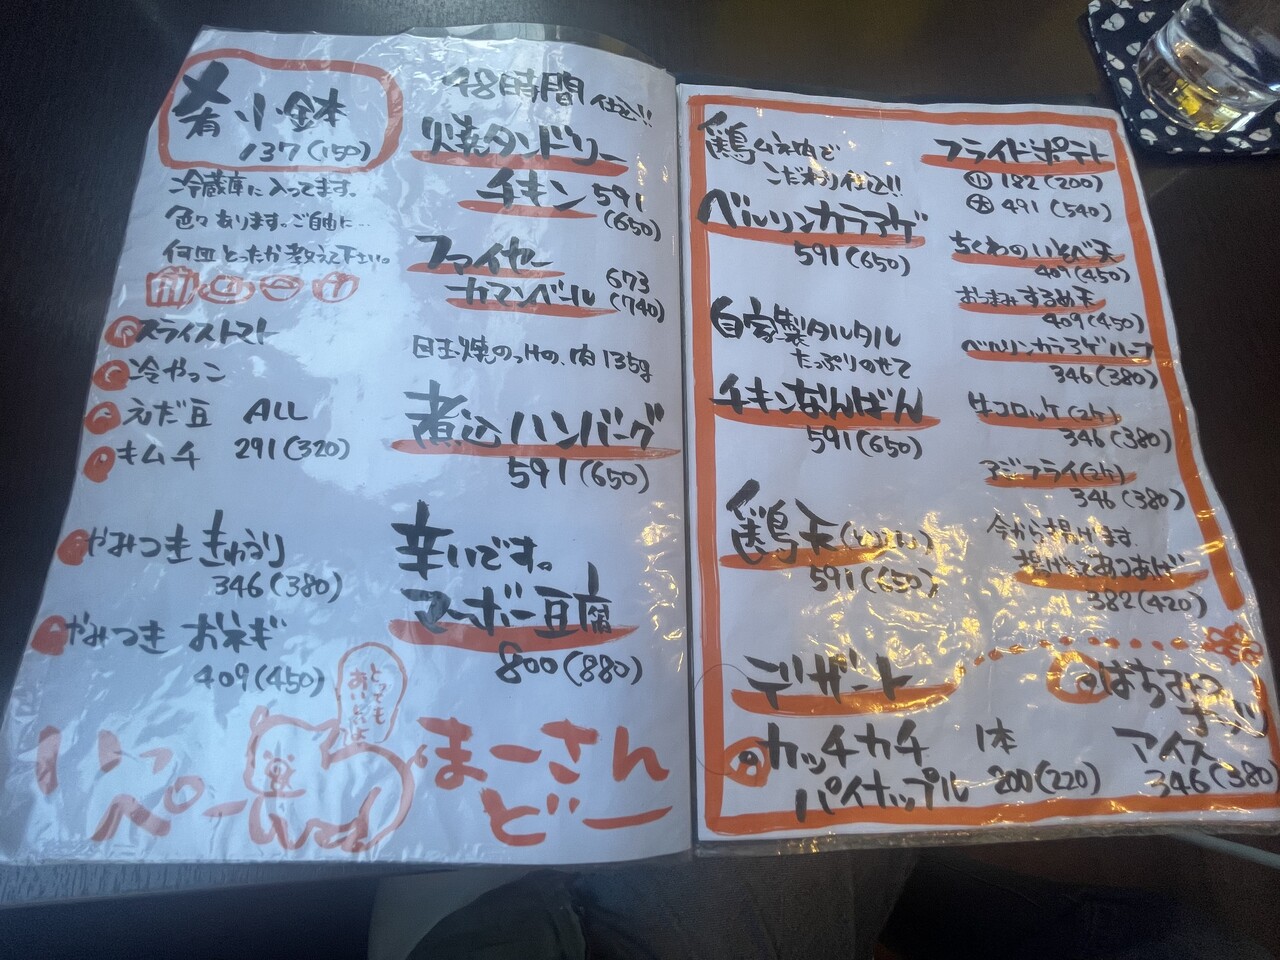 肴 小鉢
137(150)
冷蔵庫に入ってます。
色々あります。ご自由に…
何皿とったか教えて下さい。
スライストマト
冷やっこ
えだ豆 ALL
キムチ 291(320)
やみつききゅうり
346(380)
やみつき おネギ
409(450)
とっても
おいしいよ
いっぺー
まーさん
どー
48時間仕込!!
焼タンドリー
チキン 591
(650)
ファイヤー
カマンベール 673
(740)
目玉焼のっけの、肉135g
煮込ハンバーグ
591(650)
辛いです。
マーボー豆腐
800(880)
鶏ムネ肉で
こだわり仕込!!
ベルリンカラアゲ
591(650)
自家製タルタル
たっぷりのせて
チキンなんばん
591(650)
鶏天
591(650)
フライドポテト
小 182(200)
大 491(540)
ちくわのいそべ天
409(450)
おつまみするめ天
409(450)
ベルリンカラアゲハーフ
346(380)
牛コロッケ(2ケ)
346(380)
アジフライ(2ケ)
346(380)
今から揚げます。
揚げたてあつあげ
382(420)
デザート
カッチカチ 1本
パイナップル 200(220)
はちみつ
ナッツ
アイス
346(380)